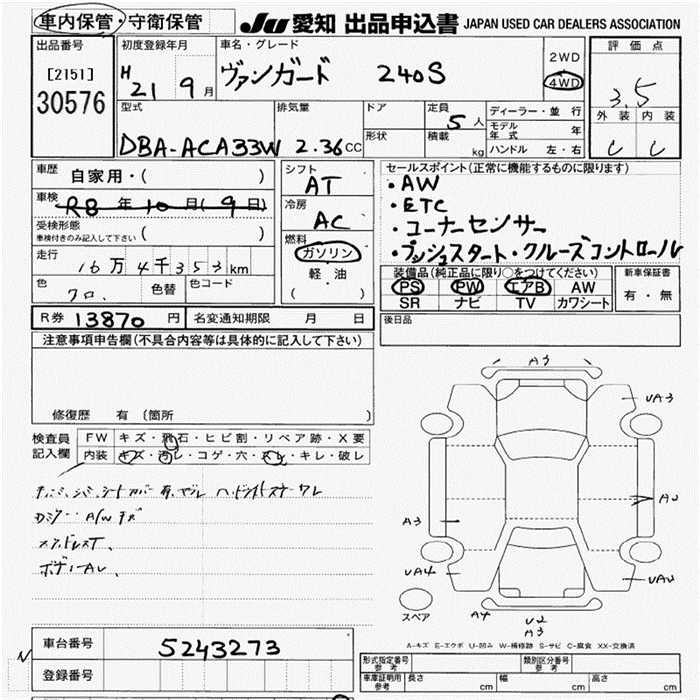 車内保管・守衛保管
JU 愛知 出品申込書 JAPAN USED CAR DEALERS ASSOCIATION
出品番号
[2151]
30576
初度登録年月
H 21 9月
車名・グレード
ヴァンガード 240S
2WD
4WD
評価点
3.5
外装 内装
C C
型式
DBA-ACA33W
排気量
2.36cc
ドア
形状
定員
5人
積載 kg
ディーラー・並行
モデル年式 年
ハンドル 左・右
車歴
自家用・( )
車検
R8年10月(9日)
受検形態
車検付きのみ記入して下さい ( )
走行
16万4千353km
色
クロ.
色替
色コード
シフト
AT
冷房
AC
燃料
ガソリン
軽油
( )
セールスポイント(正常に機能するものに限ります)
・AW
・ETC
・コーナーセンサー
・プッシュスタート・クルーズコントロール
装備品(純正品に限り○をつけてください)
PS PW エアB AW
SR ナビ TV カワシート
新車保証書
有・無
R券 13870円
名変通知期限 月 日
後日品
注意事項申告欄(不具合内容等は具体的に記入して下さい)
修復歴 有(箇所 )
検査員記入欄
FW キズ・飛石・ヒビ割・リペア跡・X要
内装 キズ・汚レ・コゲ・穴・スレ・キレ・破レ
A/W キズ
ボデーAU、
A3
UA3
A2
A3
UA4
UA2
A4
U2
A3
スペア
A-キズ E-エクボ U-凹み W-補修跡 S-サビ C-腐食 XX-交換済
N
車台番号
5243273
登録番号
形式指定番号
参考
類別区分番号
参考
車庫証明用
参考
長さ cm
幅 cm
高さ cm